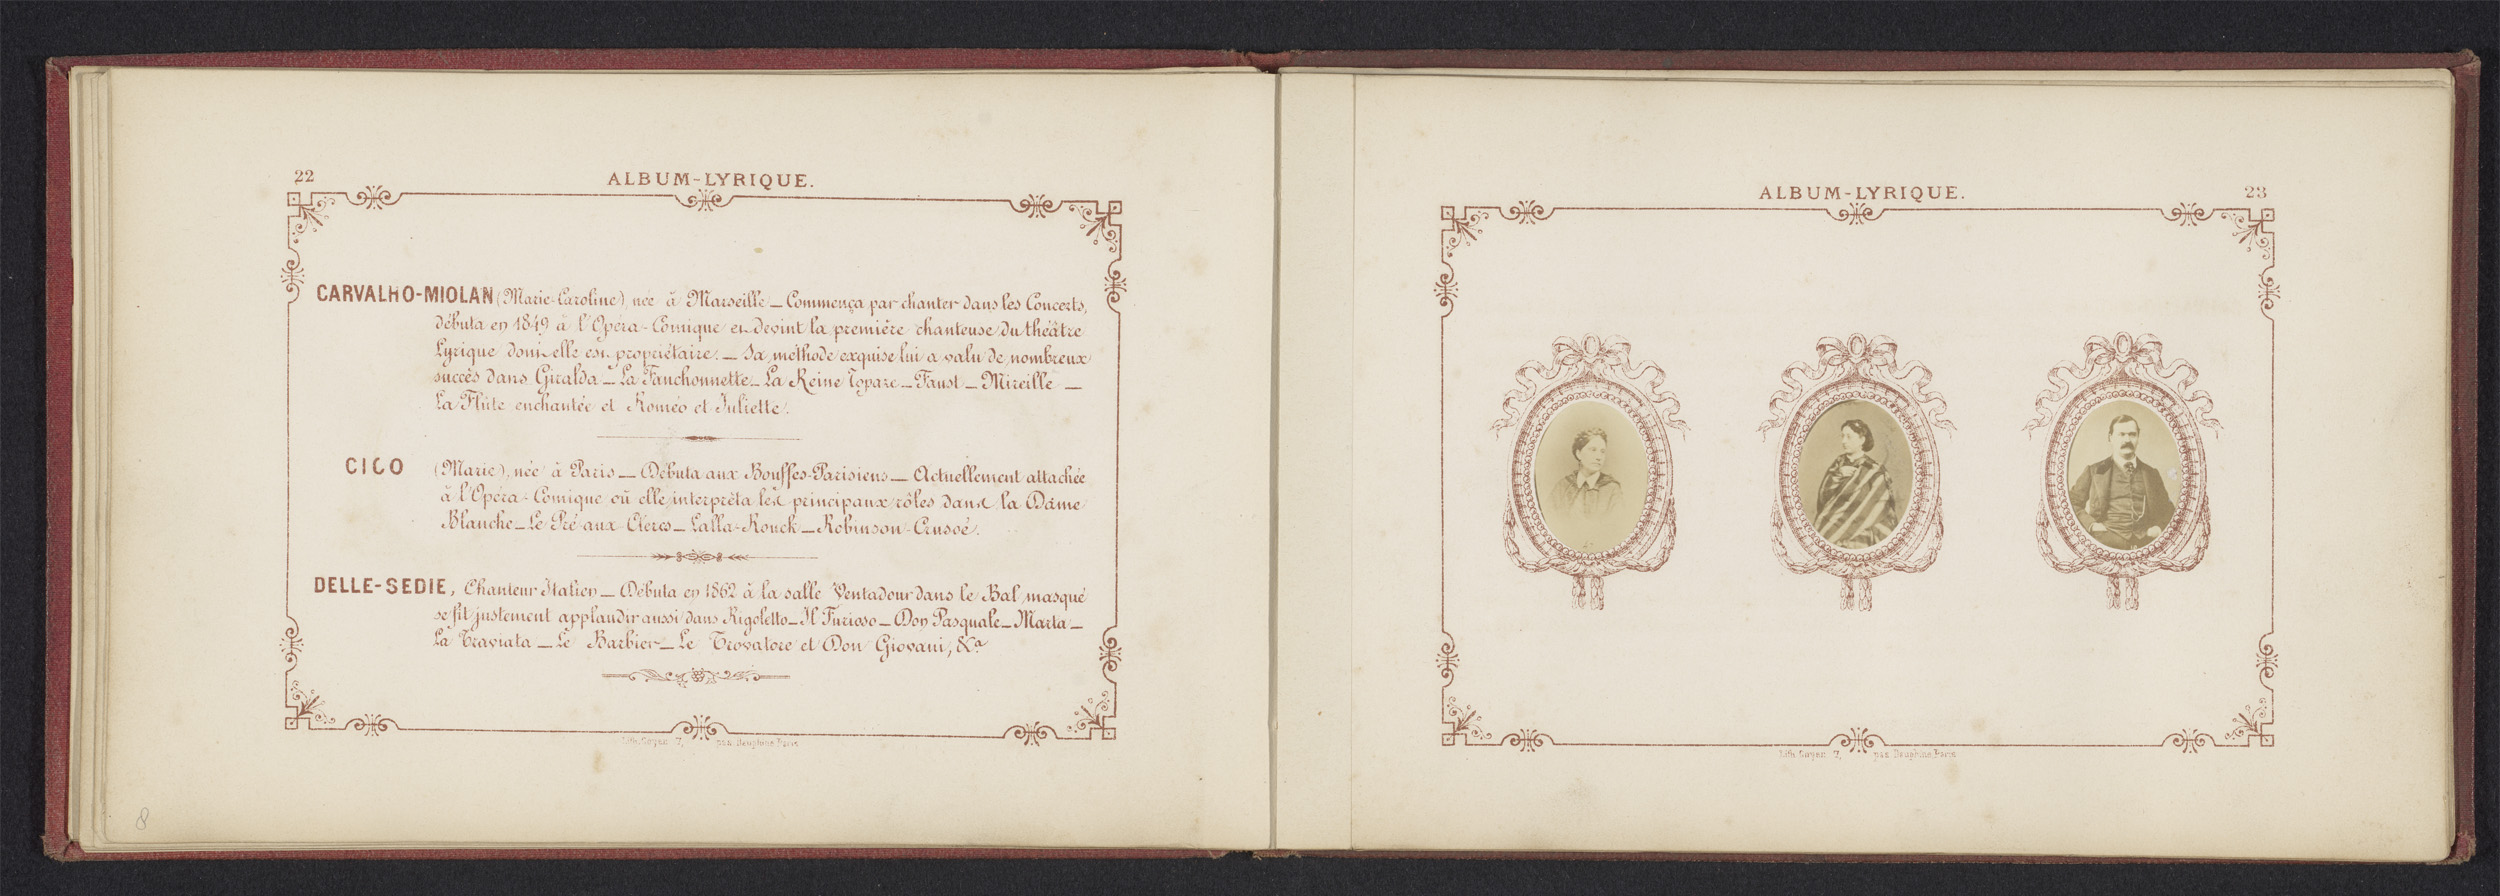 22
ALBUM-LYRIQUE.
CARVALHO-MIOLAN (Marie-Caroline) née à Marseille — Commença par chanter dans les Concerts,
débuta en 1849 à l'Opéra-Comique et devint la première chanteuse du théâtre
Lyrique dont elle est propriétaire. — Sa méthode exquise lui a valu de nombreux
succès dans Giralda — La Fanchonnette — La Reine Topaze — Faust — Mireille —
La Flûte enchantée et Roméo et Juliette.
CICO (Marie), née à Paris — Débuta aux Bouffes-Parisiens — Actuellement attachée
à l'Opéra-Comique où elle interpréta les principaux rôles dans la Dame
Blanche — Le Pré aux Clercs — Lalla-Rouck — Robinson-Crusoé.
DELLE-SEDIE, Chanteur Italien — Débuta en 1862 à la salle Ventadour dans le Bal masqué
se fit justement applaudir aussi dans Rigoletto — Il Furioso — Don Pasquale — Marta —
La Traviata — Le Barbier — Le Trovatore et Don Giovani, &a
Lith. Gayer 7, pas. Dauphine Paris
8
ALBUM-LYRIQUE.
23
Lith. Gayer 7, pas. Dauphine Paris